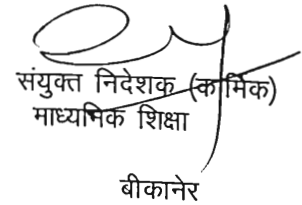 संयुक्त निदेशक (कार्मिक)
माध्यमिक शिक्षा
बीकानेर